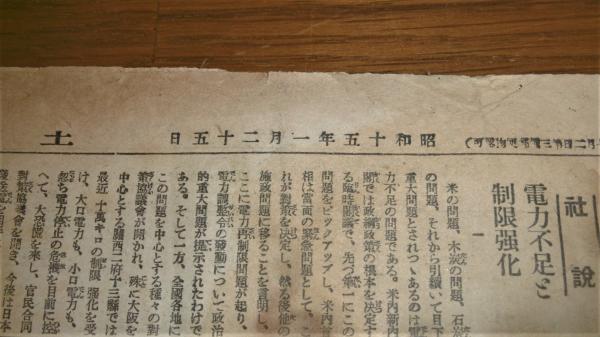 日五十二月一年五十和昭
土
社説
電力不足と
制限强化
一
米の問題、木炭の問題、石炭
の問題、それから引續いて目下
重大問題とされつゝあるのは電
力不足の問題である。米内新内
閣では政綱政策の根本を決定す
る臨時閣議で、先づ第一にこの
問題をピックアップし、米内首
相は當面の緊急問題として、こ
れが對策を決定し、然る後他の
施政問題に移ることを言明し、
ここに電力再制限問題が起り、
電力調整令の發動について政治
的重大問題が提示されたわけで
ある。そして一方、全國各地に
この問題を中心とする種々の對
策協議會が開かれ、殊に大阪を
中心とする關西二府十三縣では
最近十萬キロの制限强化を受
け、大口電力も、小口電力も、
電力停止の危機を目前に控
へて、大恐慌を來し、官民合同
對策協議會を開き、今後は日本